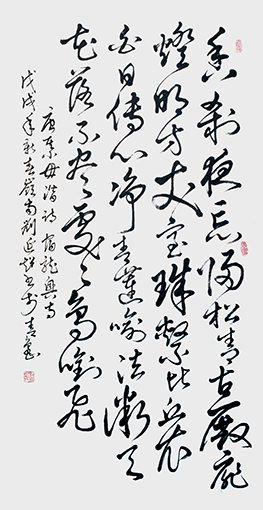 香刹夜忘归松青古殿扉
燈明方丈室珠繫比丘衣
白日傳心淨青蓮喻法微天
花落不盡處々鳥銜飛
唐綦毋潛詩宿龍興寺
戊戌年新春嶺南劉延書於青